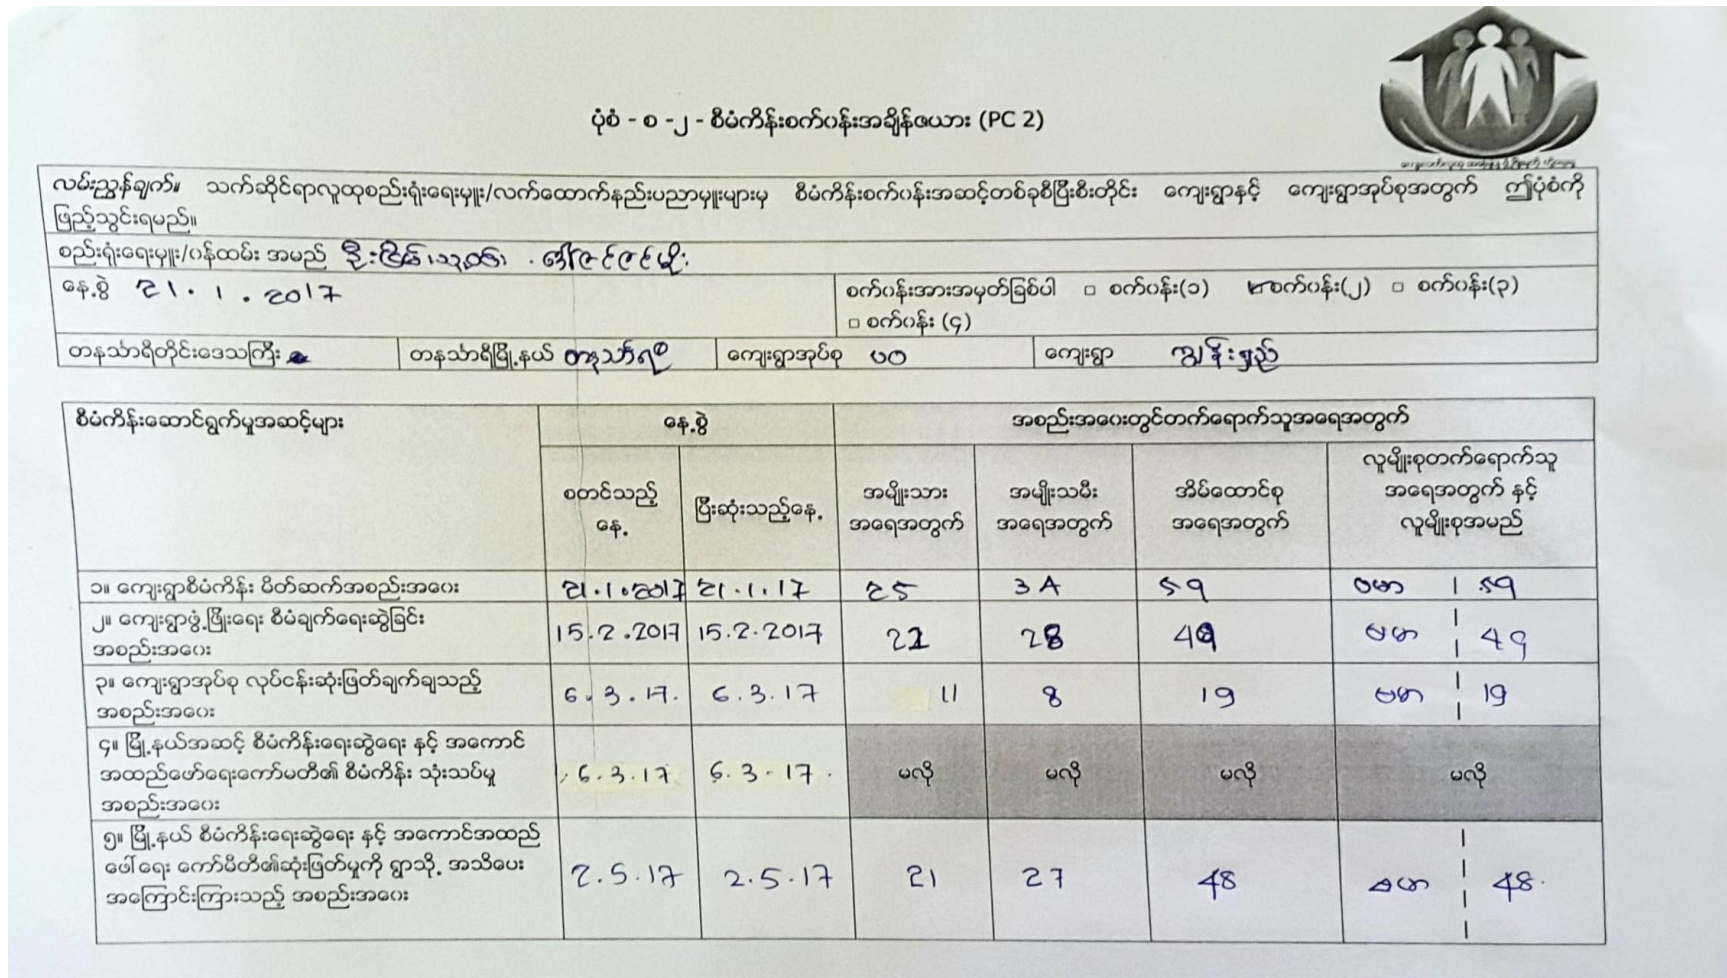 ပုံစံ - စ -၂ - စီမံကိန်းစက်ပန်းအချိန်ဇယား (PC 2)
လမ်းညွှန်ချက်။ သက်ဆိုင်ရာလူထုစည်းရုံးရေးမှူး/လက်ထောက်နည်းပညာမှူးများမှ စီမံကိန်းစက်ပန်းအဆင့်တစ်ခုစီပြီးစီးတိုင်း ကျေးရွာနှင့် ကျေးရွာအုပ်စုအတွက် ဤပုံစံကို
ဖြည့်သွင်းရမည်။
စည်းရုံးရေးမှူး/ဝန်ထမ်း အမည်
နေ့စွဲ 21.1.2017
စက်ပန်းအားအမှတ်ခြစ်ပါ □ စက်ပန်း(၁) စက်ပန်း(၂) □ စက်ပန်း(၃)
□ စက်ပန်း (၄)
တနင်္သာရီတိုင်းဒေသကြီး တနင်္သာရီမြို့နယ် တနင်္သာရီ ကျေးရွာအုပ်စု ပဝ ကျေးရွာ ကျွန်းရှည်
စီမံကိန်းဆောင်ရွက်မှုအဆင့်များ နေ့စွဲ အစည်းအဝေးတွင်တက်ရောက်သူအရေအတွက်
စတင်သည့်
နေ့
ပြီးဆုံးသည့်နေ့
အမျိုးသား
အရေအတွက်
အမျိုးသမီး
အရေအတွက်
အိမ်ထောင်စု
အရေအတွက်
လူမျိုးစုတက်ရောက်သူ
အရေအတွက် နှင့်
လူမျိုးစုအမည်
၁။ ကျေးရွာစီမံကိန်း မိတ်ဆက်အစည်းအဝေး 21.1.2017 21.1.17 25 34 59 ဗမာ 59
၂။ ကျေးရွာဖွံ့ဖြိုးရေး စီမံချက်ရေးဆွဲခြင်း
အစည်းအဝေး 15.2.2017 15.2.2017 21 28 49 ဗမာ 49
၃။ ကျေးရွာအုပ်စု လုပ်ငန်းဆုံးဖြတ်ချက်ချသည့်
အစည်းအဝေး 6.3.17. 6.3.17 11 8 19 ဗမာ 19
၄။ မြို့နယ်အဆင့် စီမံကိန်းရေးဆွဲရေး နှင့် အကောင်
အထည်ဖော်ရေးကော်မတီ၏ စီမံကိန်း သုံးသပ်မှု
အစည်းအဝေး 6.3.17 6.3.17. မလို မလို မလို မလို
၅။ မြို့နယ် စီမံကိန်းရေးဆွဲရေး နှင့် အကောင်အထည်
ဖေါ်ရေး ကော်မီတီ၏ဆုံးဖြတ်မှုကို ရွာသို့ အသိပေး
အကြောင်းကြားသည့် အစည်းအဝေး 2.5.17 2.5.17 21 27 48 ဗမာ 48.